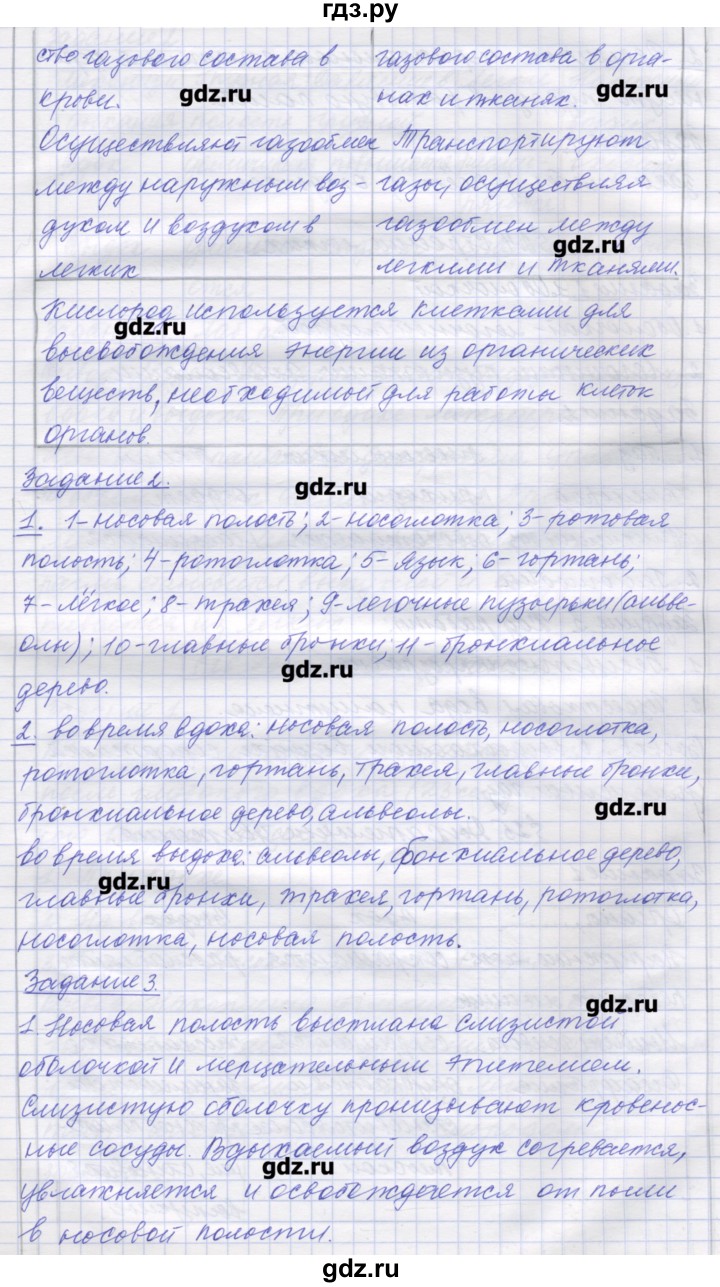 гдз.ру
ство газового состава в
крови.
gdz.ru
газового состава в орга-
нах и тканях.
gdz.ru
Осуществляют газообмен
между наружным воз-
духом и воздухом в
легких
Транспортируют
газы, осуществляя
газообмен между
gdz.ru
легкими и тканями.
Кислород используется клетками для
gdz.ru
высвобождения энергии из органических
веществ, необходимой для работы клеток
органов.
Задание 2.
gdz.ru
1. 1-носовая полость; 2-носоглотка; 3-ротовая
полость; 4-ротоглотка; 5-язык; 6-гортань;
7-лёгкое; 8-трахея; 9-легочные пузырьки (альве-
олы); 10-главные бронхи; 11-бронхиальное
gdz.ru
дерево.
2. во время вдоха: носовая полость, носоглотка,
ротоглотка, гортань, трахея, главные бронхи,
бронхиальное дерево, альвеолы.
gdz.ru
во время выдоха: альвеолы, бронхиальное дерево,
gdz.ru
главные бронхи, трахея, гортань, ротоглотка,
носоглотка, носовая полость.
Задание 3.
gdz.ru
1 Носовая полость выстлана слизистой
оболочкой и мерцательным эпителием.
Слизистую оболочку пронизывают кровенос-
ные сосуды. Вдыхаемый воздух согревается,
gdz.ru
увлажняется и освобождается от пыли
в носовой полости.
gdz.ru